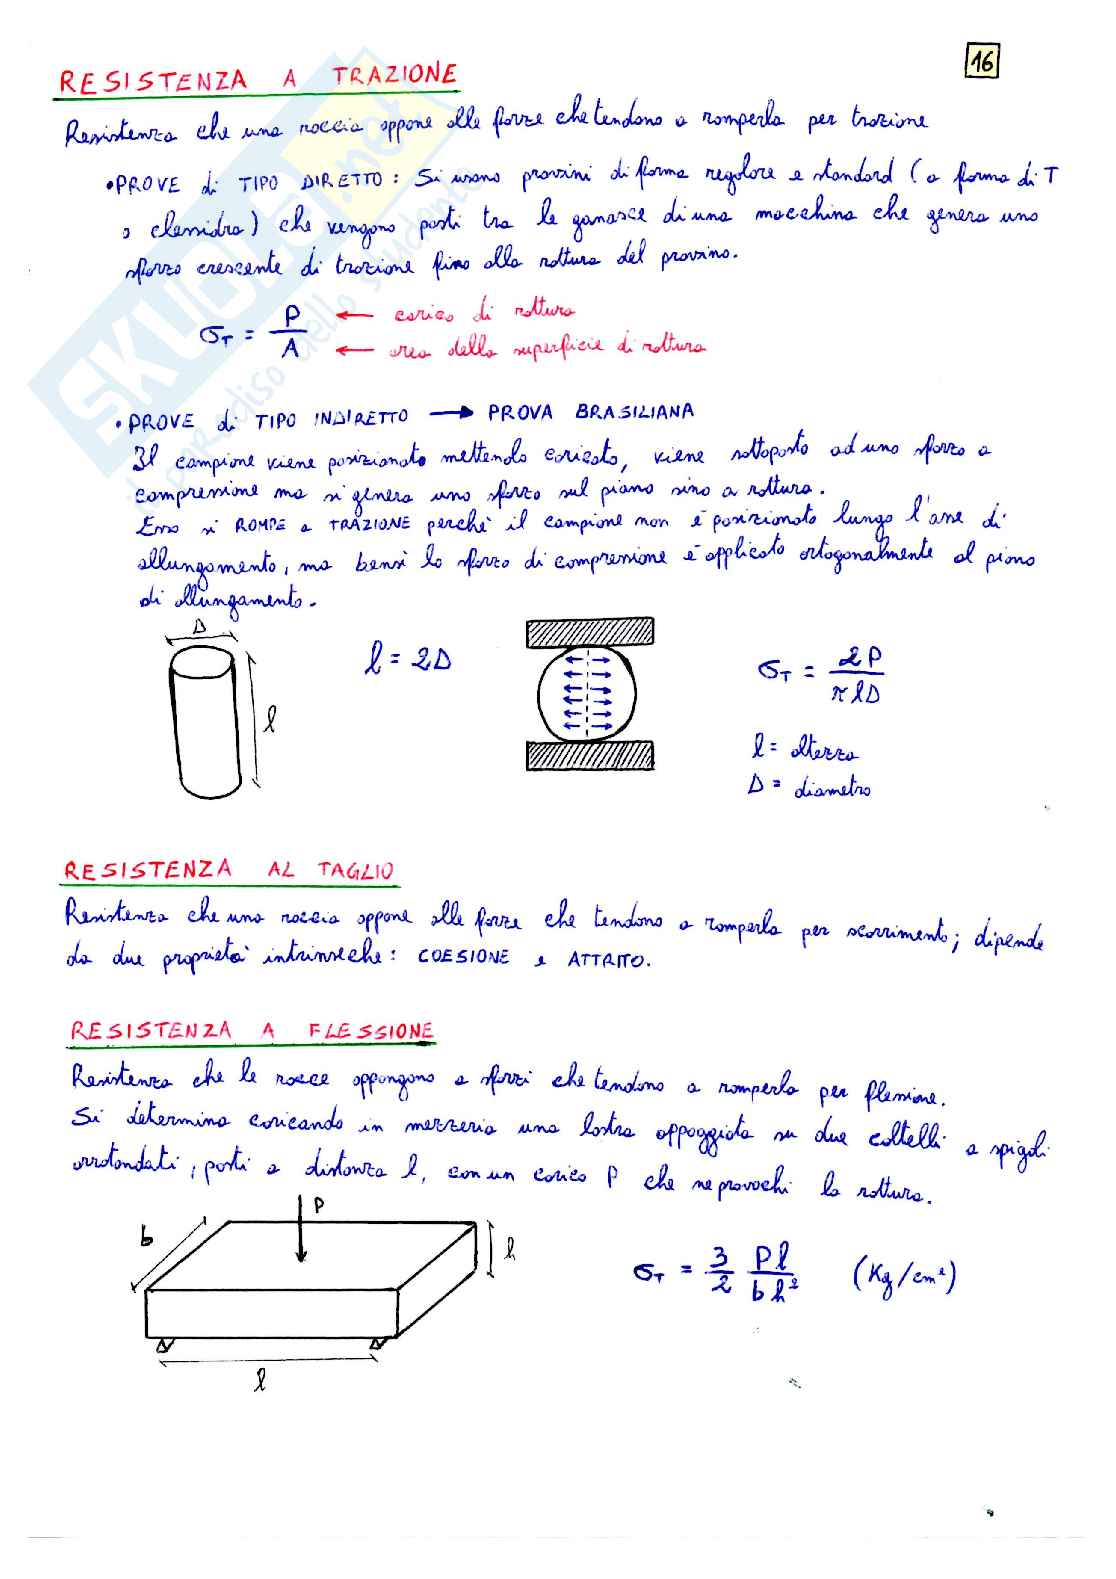 16
RESISTENZA A TRAZIONE
Resistenza che una roccia oppone alle forze che tendono a romperla per trazione
• PROVE di TIPO DIRETTO: Si usano provini di forma regolare e standard (a forma di T
o clessidra) che vengono posti tra le ganasce di una macchina che genera uno
sforzo crescente di trazione fino alla rottura del provino.
σT = P/A ← carico di rottura
← area della superficie di rottura
• PROVE di TIPO INDIRETTO → PROVA BRASILIANA
Il campione viene posizionato mettendolo coricato, viene sottoposto ad uno sforzo a
compressione ma si genera uno sforzo sul piano sino a rottura.
Esso si ROMPE a TRAZIONE perché il campione non è posizionato lungo l'asse di
allungamento, ma bensì lo sforzo di compressione è applicato ortogonalmente al piano
di allungamento.
D
l
l = 2D
σT = 2P/πlD
l = altezza
D = diametro
RESISTENZA AL TAGLIO
Resistenza che una roccia oppone alle forze che tendono a romperla per scorrimento; dipende
da due proprietà intrinseche: COESIONE e ATTRITO.
RESISTENZA A FLESSIONE
Resistenza che le rocce oppongono a sforzi che tendono a romperla per flessione.
Si determina caricando in mezzeria una lastra appoggiata su due coltelli a spigoli
arrotondati, posti a distanza l, con un carico P che ne provochi la rottura.
P
b
h
l
σT = 3/2 Pl/bh² (Kg/cm²)
SKUOLA.net
il paradiso dello studente